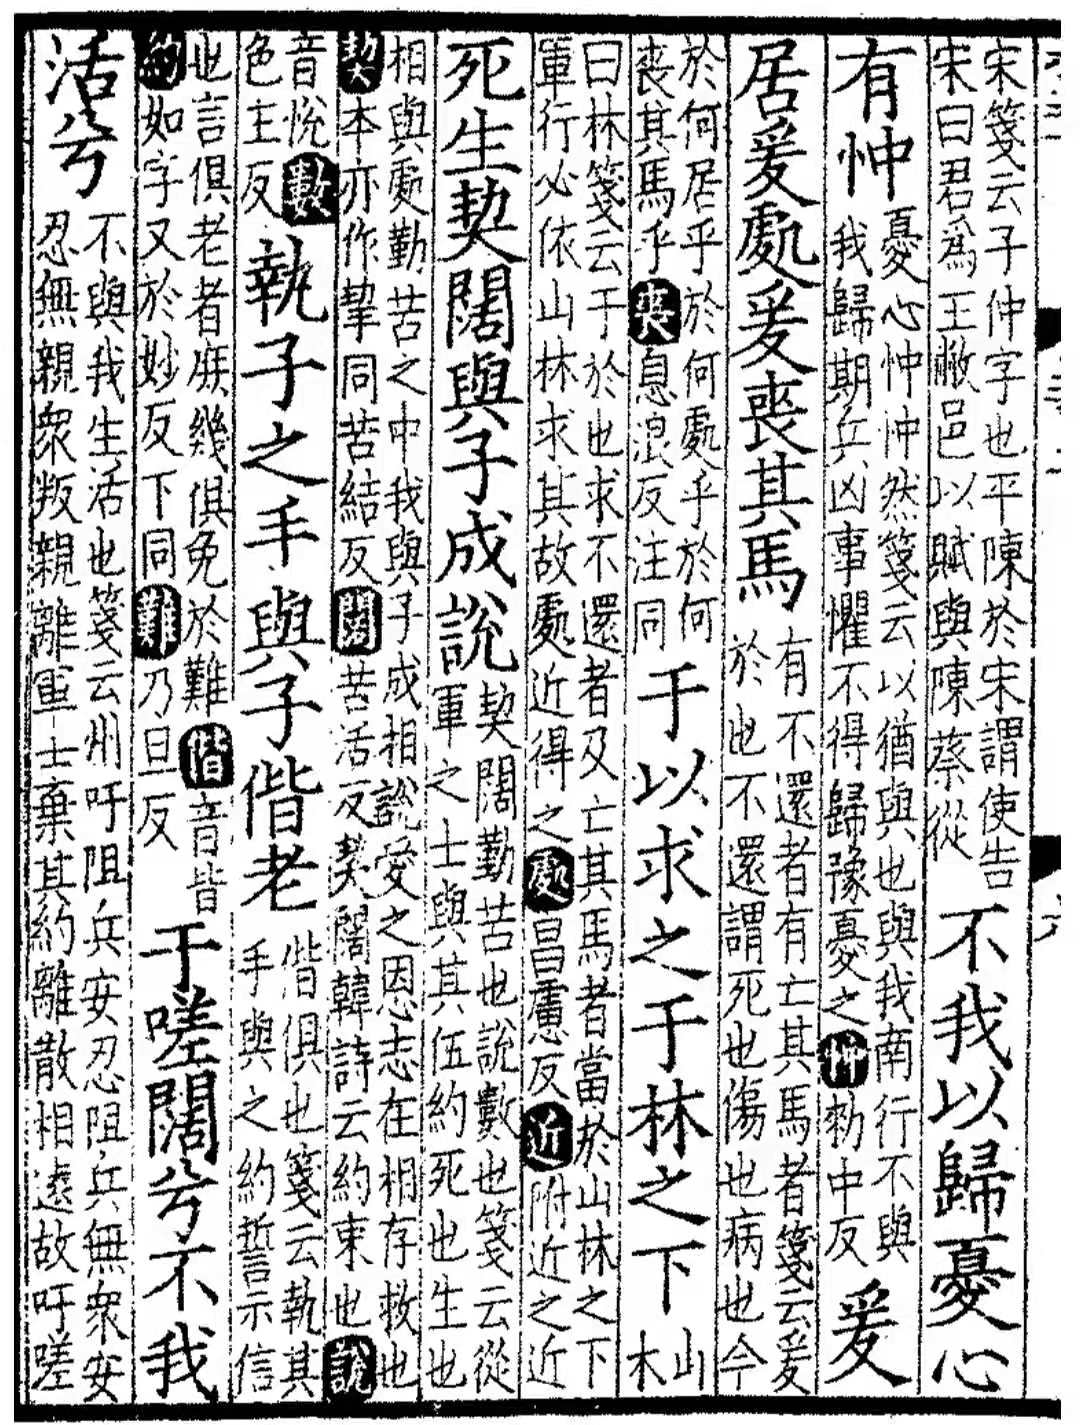 宋箋云子仲字也平陳於宋謂使告
宋曰君爲王敝邑以賦與陳蔡從
不我以歸憂心
有忡
憂心忡忡然箋云以猶與也與我南行不與
我歸期兵凶事懼不得歸豫憂之忡勑中反
爰
居爰處爰喪其馬
有不還者有亡其馬者箋云爰
於也不還謂死也傷也病也今
於何居乎於何處乎於何
喪其馬乎喪息浪反注同
于以求之于林之下
山
木
曰林箋云于於也求不還者及亡其馬者當於山林之下
軍行必依山林求其故處近得之處昌慮反近附近之近
死生契闊與子成說
契闊勤苦也說數也箋云從
軍之士與其伍約死也生也
相與處勤苦之中我與子成相說愛之因恩志在相存救也
契本亦作挈同苦結反闊苦活反契闊韓詩云約束也說
音悅數
色主反
執子之手與子偕老
偕俱也箋云執其
手與之約誓示信
也言俱老者庶幾俱免於難偕音皆
約如字又於妙反下同難乃旦反
于嗟闊兮不我
活兮
不與我生活也箋云州吁阻兵安忍阻兵無衆安
忍無親衆叛親離軍士棄其約離散相遠故吁嗟